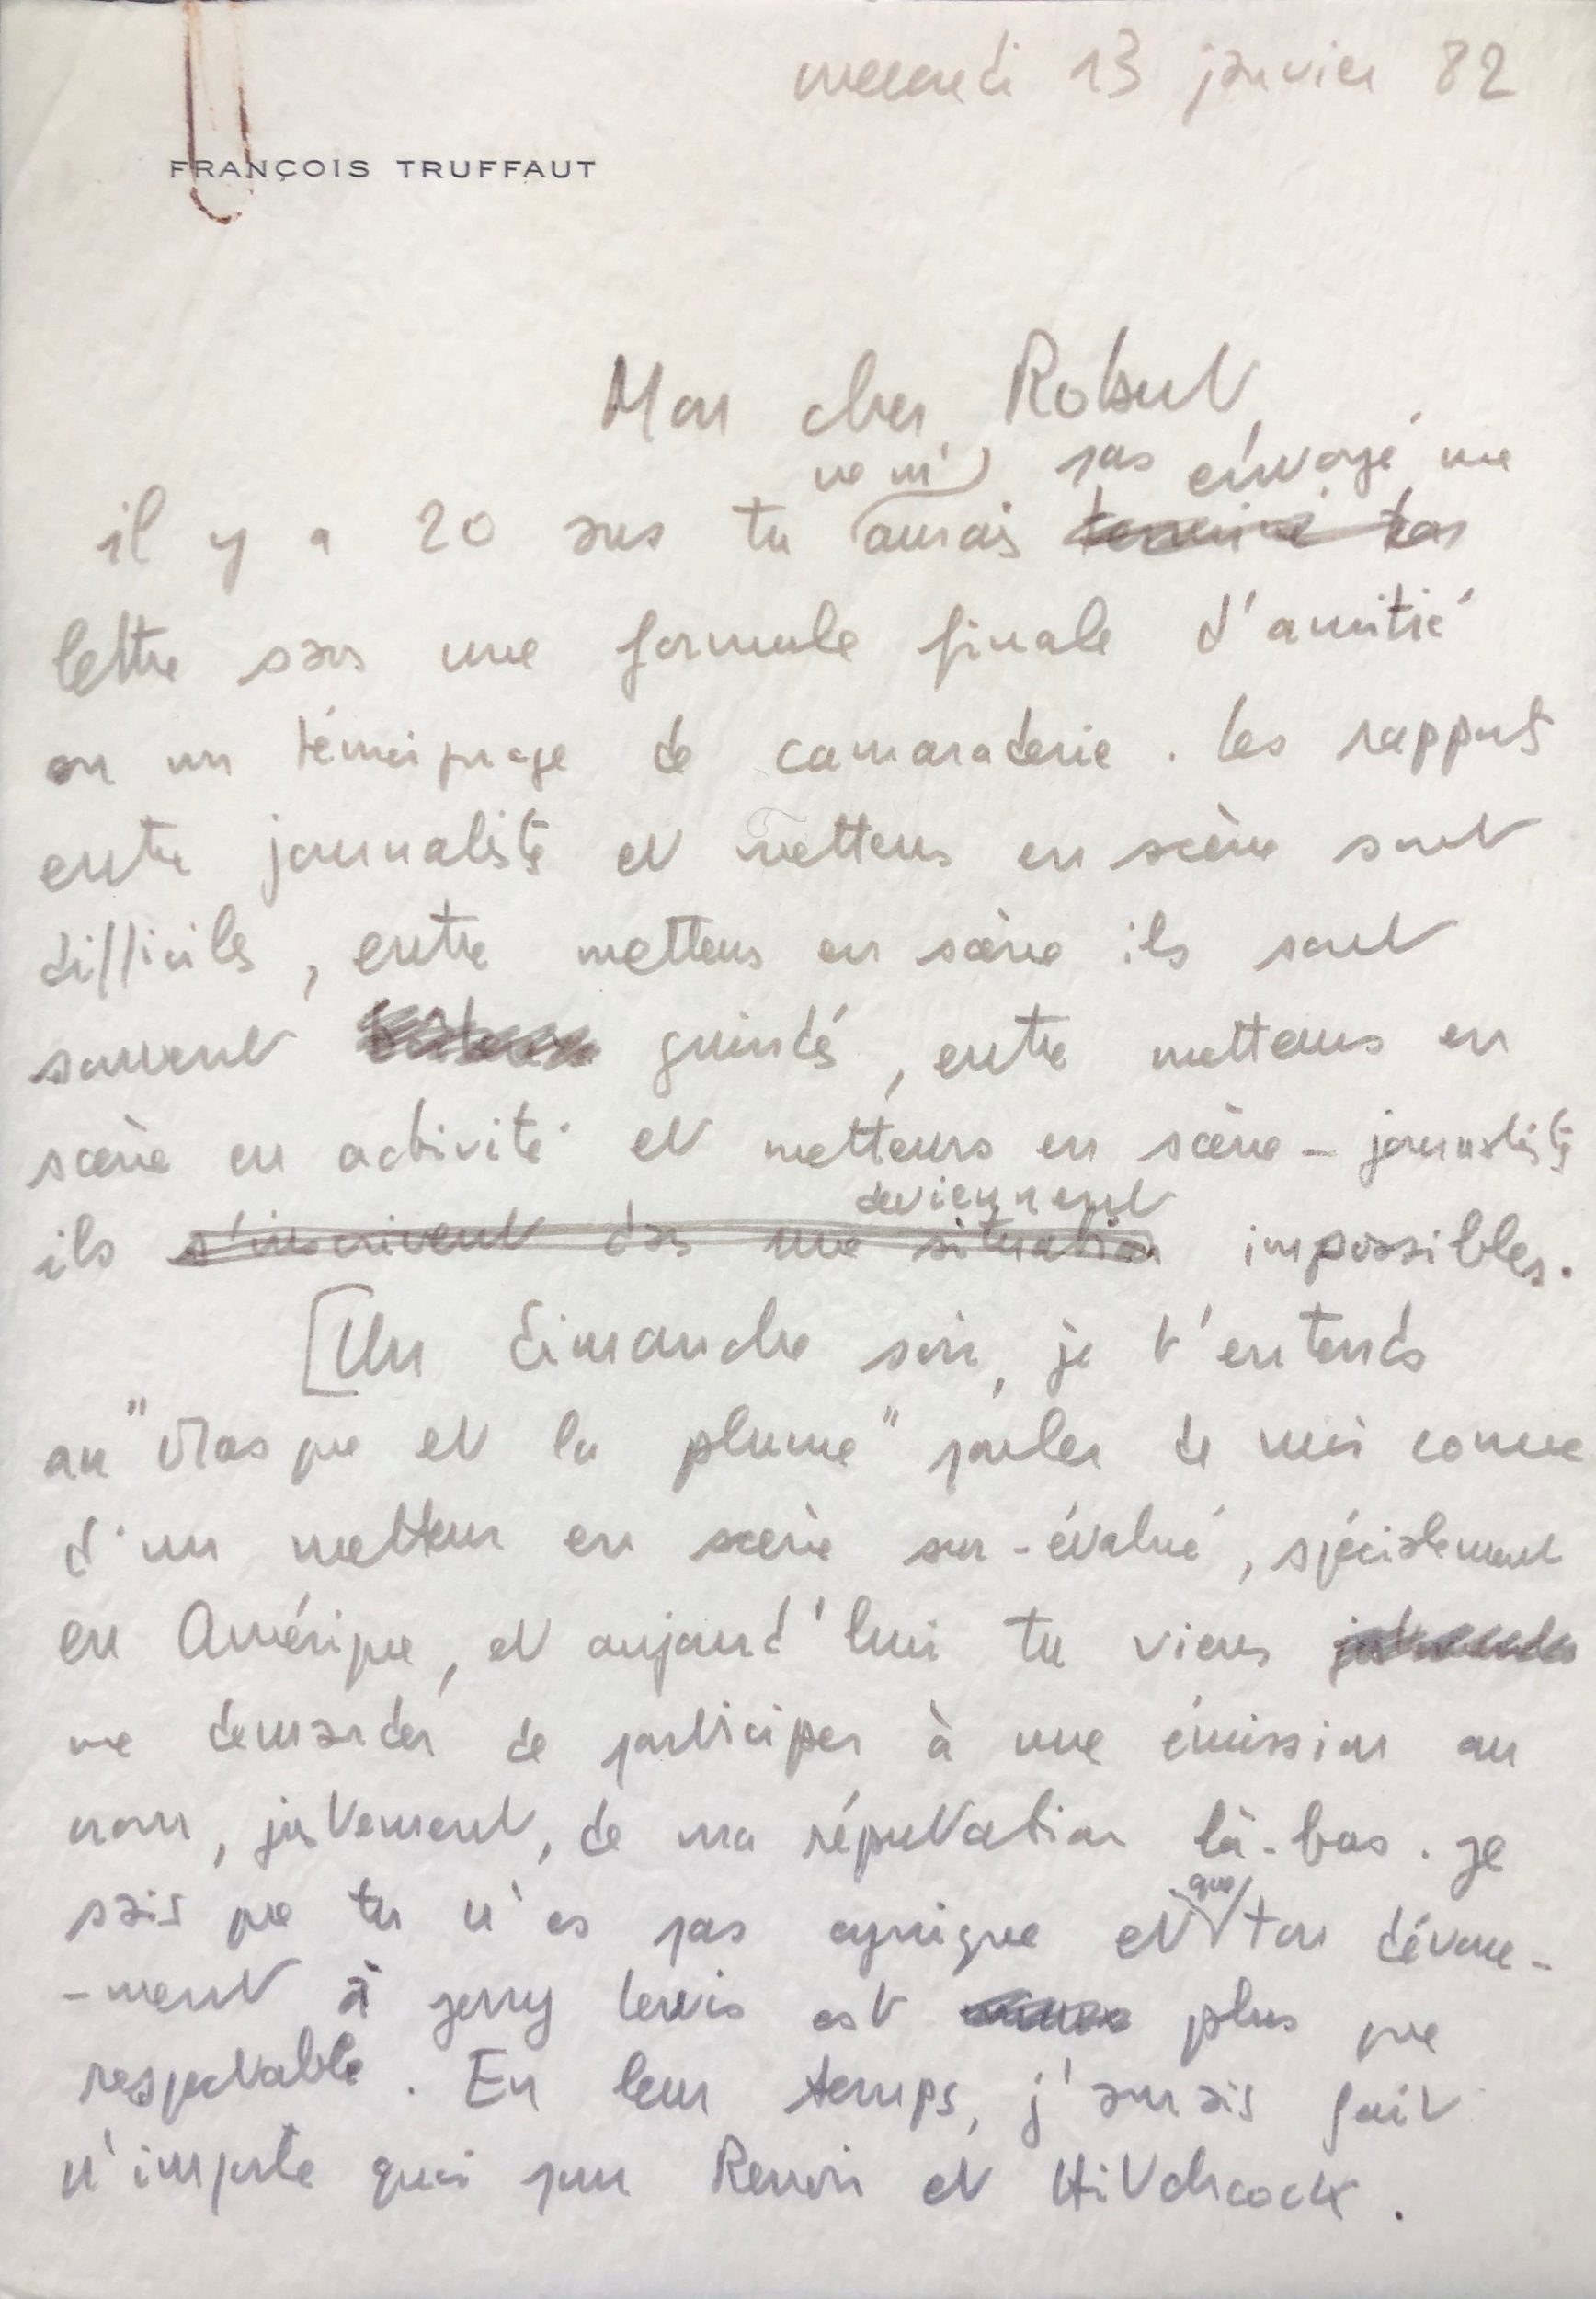 mercredi 13 janvier 82
FRANÇOIS TRUFFAUT
Mon cher Robert,
ne m' pas envoyé une
il y a 20 ans tu aurais terminé tas
lettre sans une formule finale d'amitié
ou un témoignage de camaraderie. Les rapports
entre journalistes et metteurs en scène sont
difficiles, entre metteurs en scène ils sont
souvent guindés, entre metteurs en
scène en activité et metteurs en scène - journalistes
deviennent
ils s'inscrivent dans une situation impossibles.
[Un dimanche soir, je t'entends
au "Masque et la plume" parler de moi comme
d'un metteur en scène sur-évalué, spécialement
en Amérique, et aujourd'hui tu viens
me demander de participer à une émission au
nom, justement, de ma réputation là-bas. Je
que
sais que tu n'es pas cynique et ton dévoue-
-ment à Jerry Lewis est plus que
respectable. En leur temps, j'aurais fait
n'importe quoi pour Renoir et Hitchcock.